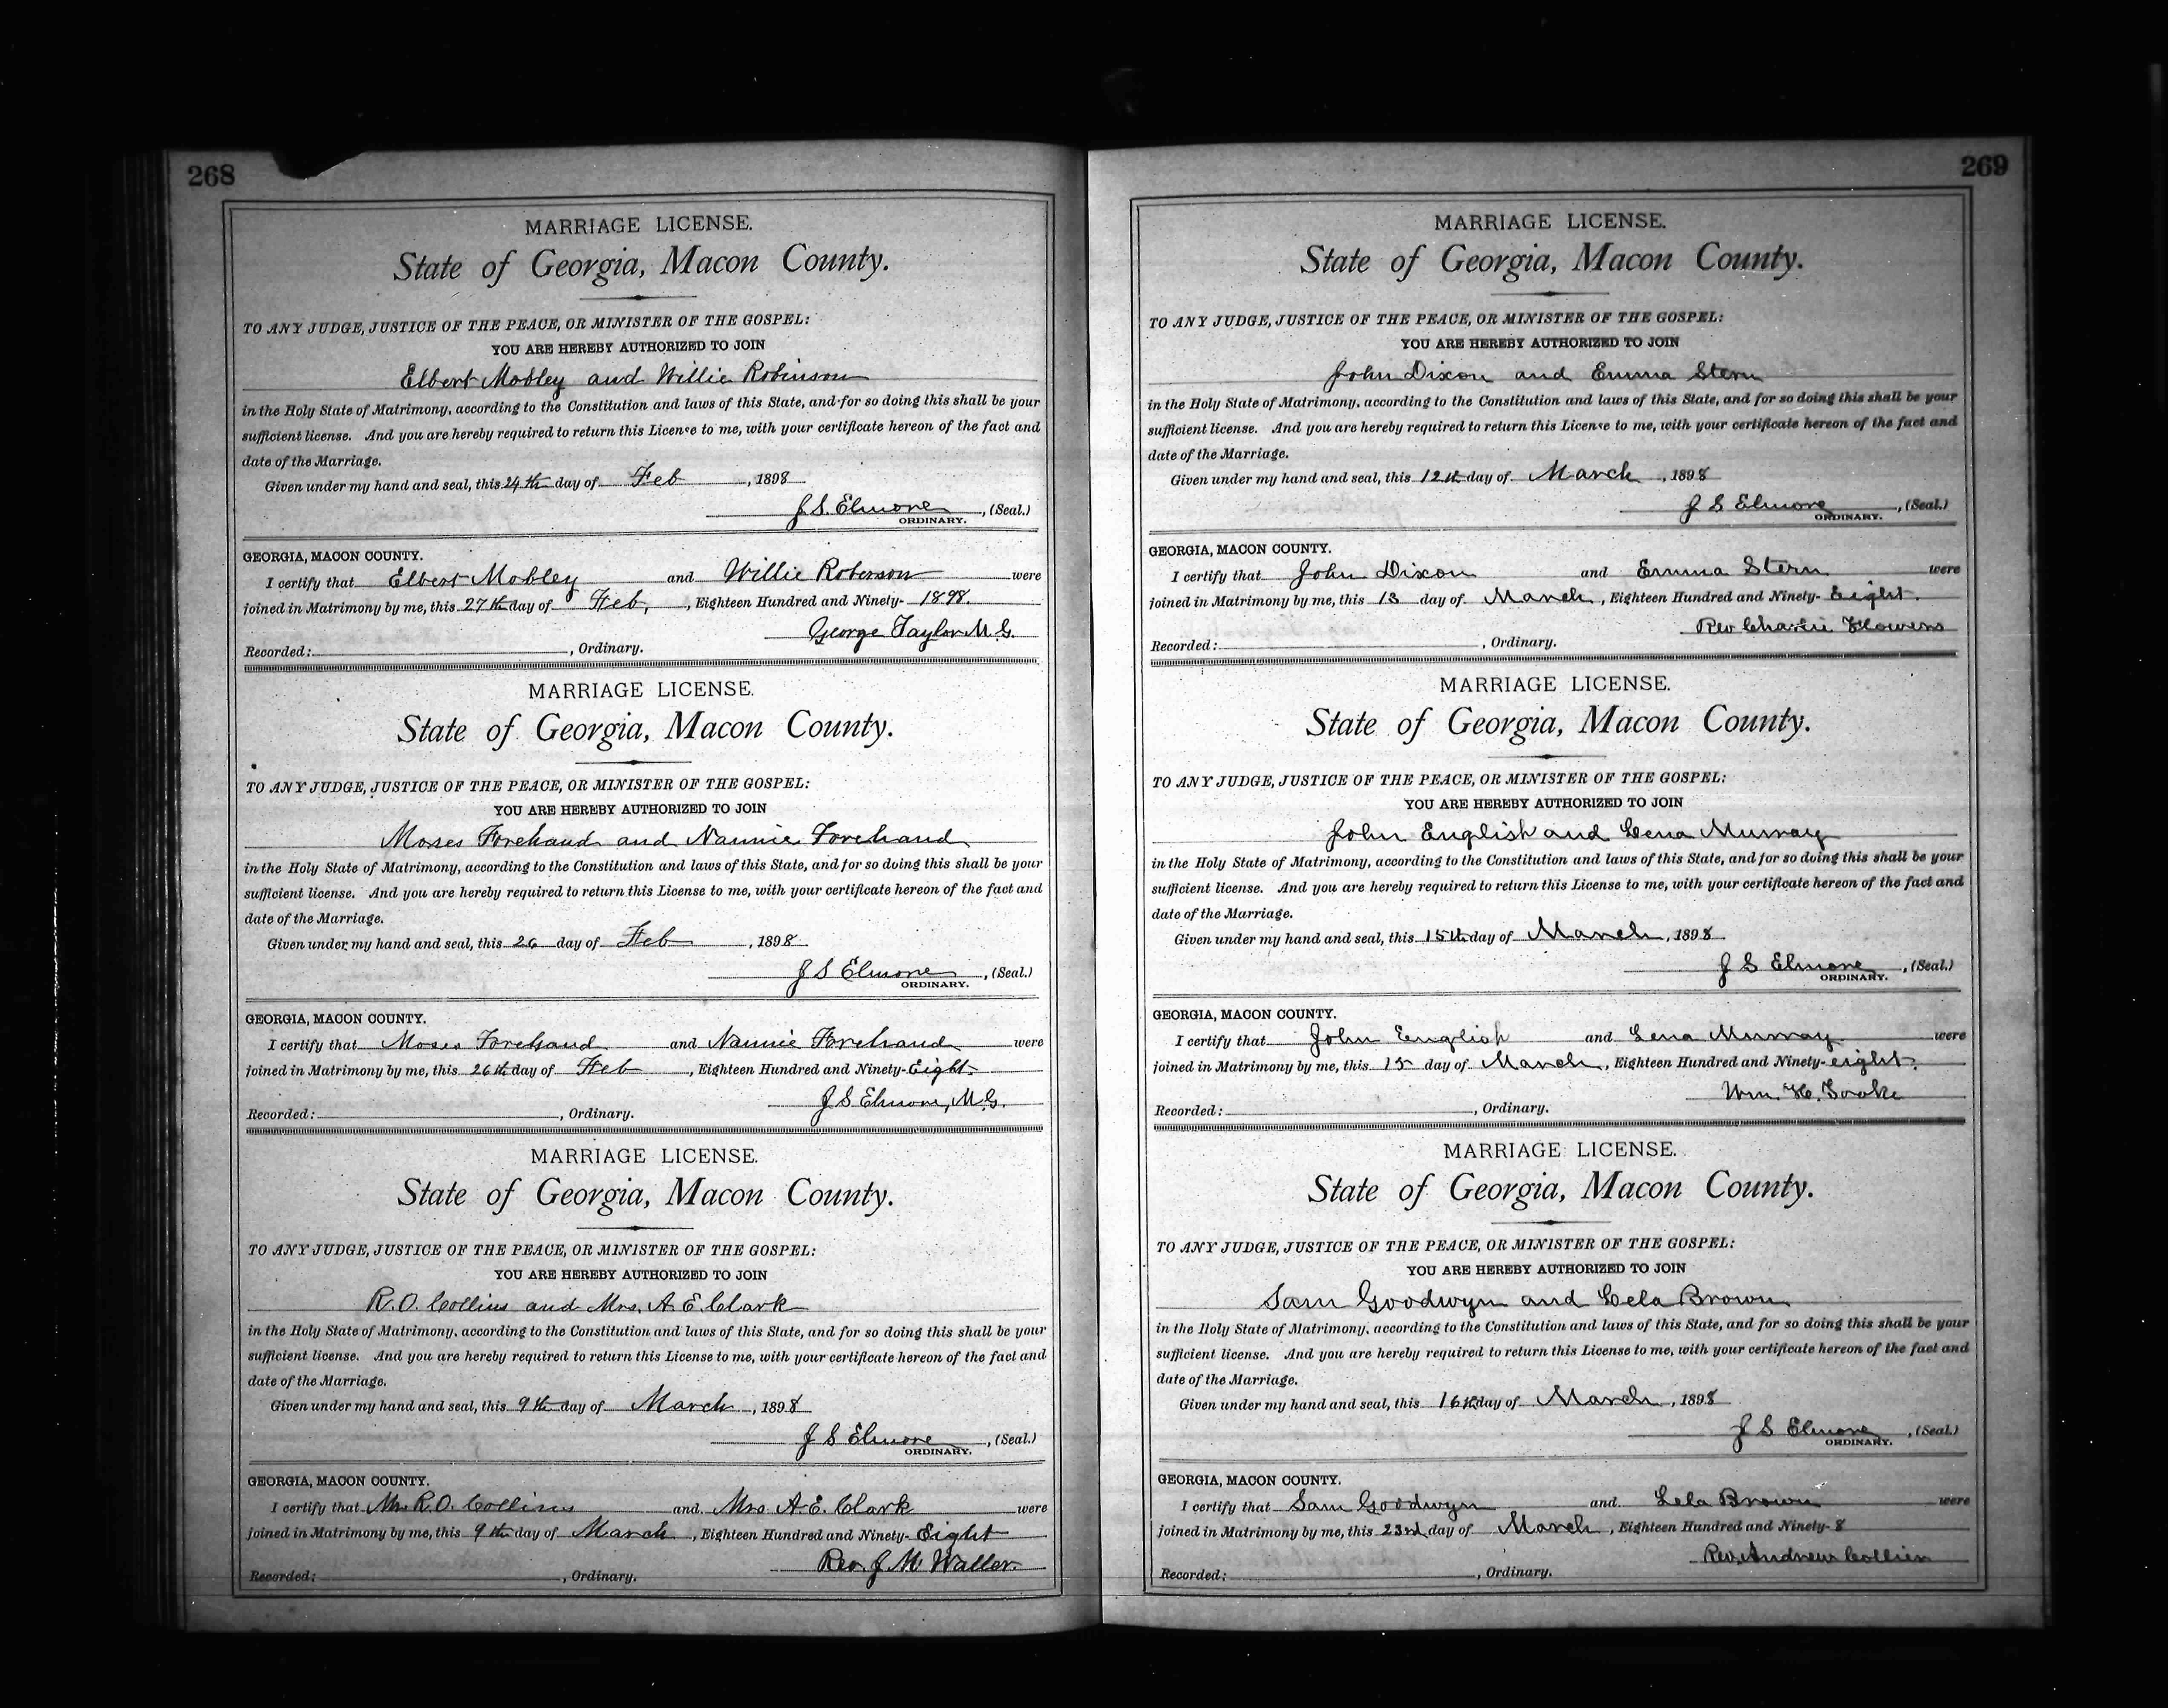 268
MARRIAGE LICENSE.
State of Georgia, Macon County.
TO ANY JUDGE, JUSTICE OF THE PEACE, OR MINISTER OF THE GOSPEL:
YOU ARE HEREBY AUTHORIZED TO JOIN
Elbert Mobley and Willie Robinson
in the Holy State of Matrimony, according to the Constitution and laws of this State, and for so doing this shall be your
sufficient license. And you are hereby required to return this License to me, with your certificate hereon of the fact and
date of the Marriage.
Given under my hand and seal, this 24th day of Feb, 1898
J. S. Elmore, (Seal.)
ORDINARY.
GEORGIA, MACON COUNTY.
I certify that Elbert Mobley and Willie Roberson were
joined in Matrimony by me, this 27th day of Feb, Eighteen Hundred and Ninety- 1898.
George Taylor M.G.
Recorded: , Ordinary.
MARRIAGE LICENSE.
State of Georgia, Macon County.
TO ANY JUDGE, JUSTICE OF THE PEACE, OR MINISTER OF THE GOSPEL:
YOU ARE HEREBY AUTHORIZED TO JOIN
Moses Forehand and Nannie Forehand
in the Holy State of Matrimony, according to the Constitution and laws of this State, and for so doing this shall be your
sufficient license. And you are hereby required to return this License to me, with your certificate hereon of the fact and
date of the Marriage.
Given under my hand and seal, this 26 day of Feb, 1898
J S Elmore, (Seal.)
ORDINARY.
GEORGIA, MACON COUNTY.
I certify that Moses Forehand and Nannie Forehand were
joined in Matrimony by me, this 26th day of Feb, Eighteen Hundred and Ninety- Eight.
J S Elmore, M.G.
Recorded: , Ordinary.
MARRIAGE LICENSE.
State of Georgia, Macon County.
TO ANY JUDGE, JUSTICE OF THE PEACE, OR MINISTER OF THE GOSPEL:
YOU ARE HEREBY AUTHORIZED TO JOIN
R. O. Collins and Mrs. A E. Clark
in the Holy State of Matrimony, according to the Constitution and laws of this State, and for so doing this shall be your
sufficient license. And you are hereby required to return this License to me, with your certificate hereon of the fact and
date of the Marriage.
Given under my hand and seal, this 9th day of March, 1898
J S Elmore, (Seal.)
ORDINARY.
GEORGIA, MACON COUNTY.
I certify that Mr. R.O. Collins and Mrs A.E. Clark were
joined in Matrimony by me, this 9th day of March, Eighteen Hundred and Ninety- Eight
Rev. J M Waller.
Recorded: , Ordinary.
269
MARRIAGE LICENSE.
State of Georgia, Macon County.
TO ANY JUDGE, JUSTICE OF THE PEACE, OR MINISTER OF THE GOSPEL:
YOU ARE HEREBY AUTHORIZED TO JOIN
John Dixon and Emma Stern
in the Holy State of Matrimony, according to the Constitution and laws of this State, and for so doing this shall be your
sufficient license. And you are hereby required to return this License to me, with your certificate hereon of the fact and
date of the Marriage.
Given under my hand and seal, this 12th day of March, 1898
J S Elmore, (Seal.)
ORDINARY.
GEORGIA, MACON COUNTY.
I certify that John Dixon and Emma Stern were
joined in Matrimony by me, this 13 day of March, Eighteen Hundred and Ninety- Eight.
Rev Charlie Flowers
Recorded: , Ordinary.
MARRIAGE LICENSE.
State of Georgia, Macon County.
TO ANY JUDGE, JUSTICE OF THE PEACE, OR MINISTER OF THE GOSPEL:
YOU ARE HEREBY AUTHORIZED TO JOIN
John English and Lena Murray
in the Holy State of Matrimony, according to the Constitution and laws of this State, and for so doing this shall be your
sufficient license. And you are hereby required to return this License to me, with your certificate hereon of the fact and
date of the Marriage.
Given under my hand and seal, this 15th day of March, 1898
J S Elmore, (Seal.)
ORDINARY.
GEORGIA, MACON COUNTY.
I certify that John English and Lena Murray were
joined in Matrimony by me, this 15 day of March, Eighteen Hundred and Ninety- eight.
Wm. H. Tooke
Recorded: , Ordinary.
MARRIAGE LICENSE.
State of Georgia, Macon County.
TO ANY JUDGE, JUSTICE OF THE PEACE, OR MINISTER OF THE GOSPEL:
YOU ARE HEREBY AUTHORIZED TO JOIN
Sam Goodwyn and Lela Brown
in the Holy State of Matrimony, according to the Constitution and laws of this State, and for so doing this shall be your
sufficient license. And you are hereby required to return this License to me, with your certificate hereon of the fact and
date of the Marriage.
Given under my hand and seal, this 16th day of March, 1898
J S Elmore, (Seal.)
ORDINARY.
GEORGIA, MACON COUNTY.
I certify that Sam Goodwyn and Lela Brown were
joined in Matrimony by me, this 23rd day of March, Eighteen Hundred and Ninety- 8
Rev. Andrew Collier
Recorded: , Ordinary.